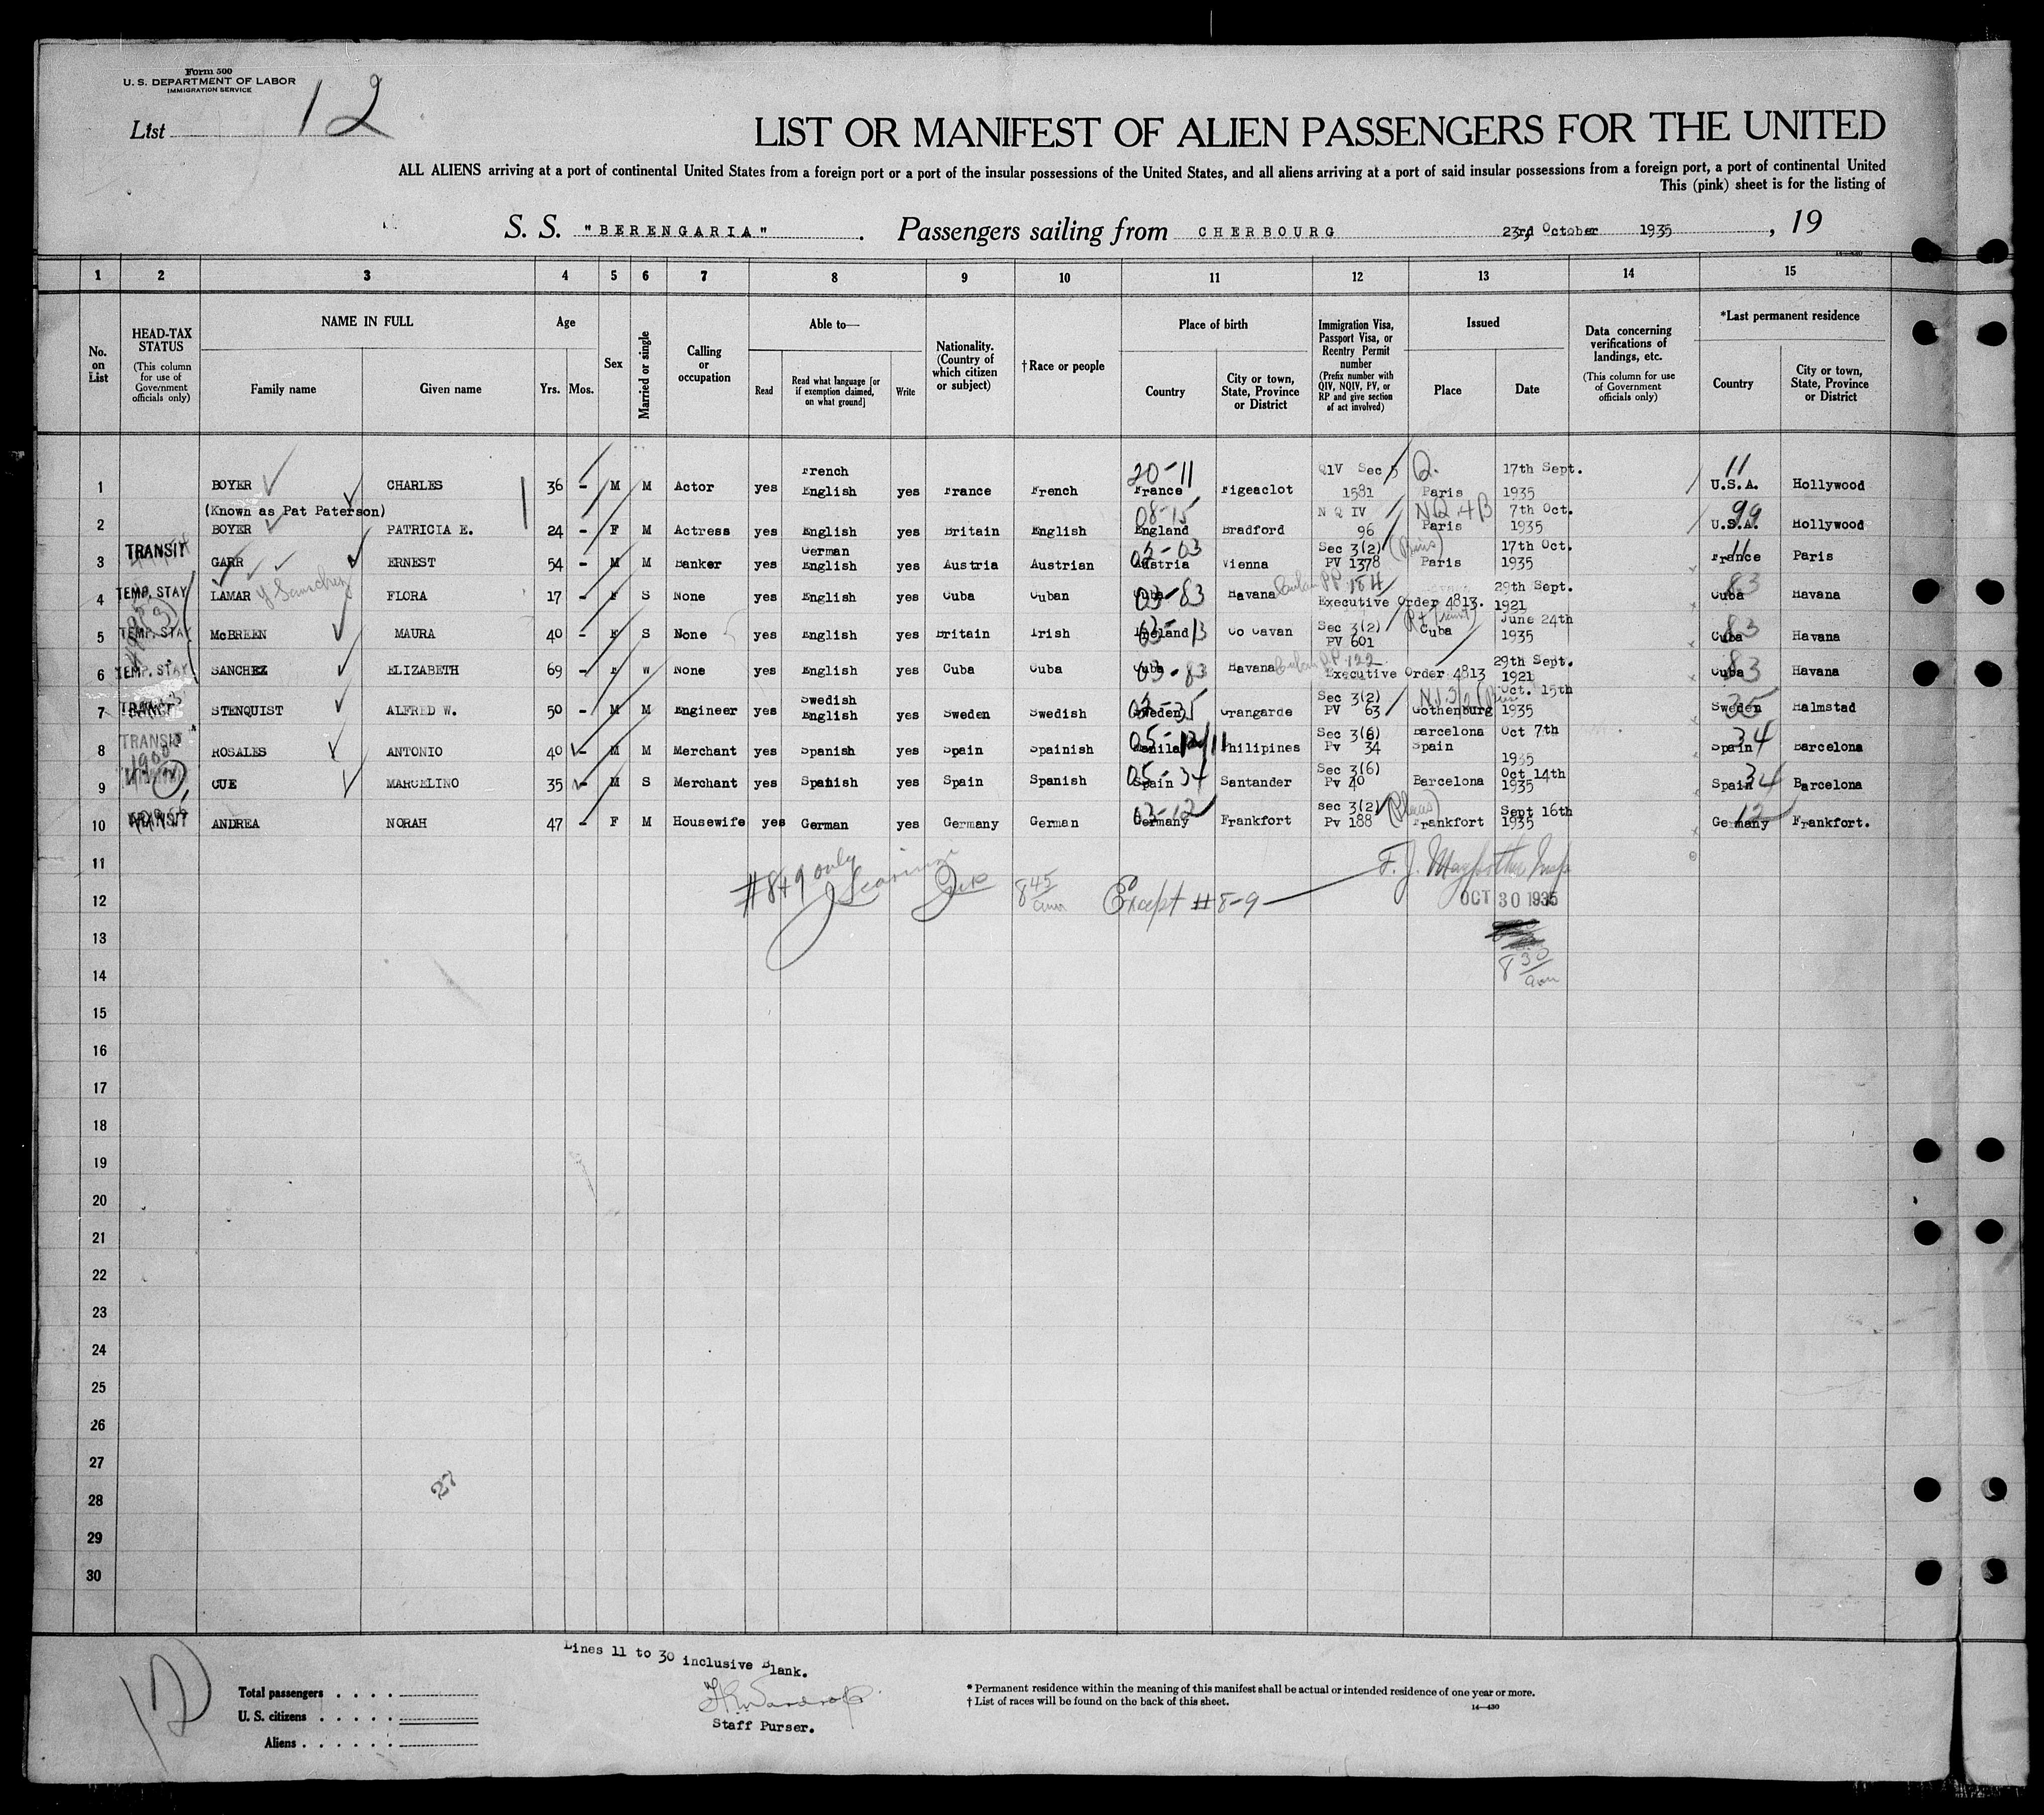 Form 500
U. S. DEPARTMENT OF LABOR
IMMIGRATION SERVICE
List 12
LIST OR MANIFEST OF ALIEN PASSENGERS FOR THE UNITED
ALL ALIENS arriving at a port of continental United States from a foreign port or a port of the insular possessions of the United States, and all aliens arriving at a port of said insular possessions from a foreign port, a port of continental United
This (pink) sheet is for the listing of
S. S. "BERENGARIA" . Passengers sailing from CHERBOURG 23rd October 1935 , 19
1 2 3 4 5 6 7 8 9 10 11 12 13 14 15
No. on List
HEAD-TAX STATUS (This column for use of Government officials only)
NAME IN FULL
Family name Given name
Age
Yrs. Mos.
Sex
Married or single
Calling or occupation
Able to—
Read Read what language [or if exemption claimed, on what ground] Write
Nationality. (Country of which citizen or subject)
† Race or people
Place of birth
Country City or town, State, Province or District
Immigration Visa, Passport Visa, or Reentry Permit number (Prefix number with QIV, NQIV, PV, or RP and give section of act involved)
Issued
Place Date
Data concerning verifications of landings, etc. (This column for use of Government officials only)
*Last permanent residence
Country City or town, State, Province or District
French 20-11 QIV Sec 5 Q. 17th Sept. 11
1 BOYER CHARLES 36 - M M Actor yes English yes France French France Figeaclot 1581 Paris 1935 U.S.A. Hollywood
(Known as Pat Paterson) 08-15 N Q IV NQ 4B 7th Oct. 99
2 BOYER PATRICIA E. 24 - F M Actress yes English yes Britain English England Bradford 96 Paris 1935 U.S.A. Hollywood
TRANSIT German Sec 3(2) (Bus) 17th Oct. 11
3 GARR ERNEST 54 - M M Banker yes English yes Austria Austrian Austria Vienna PV 1378 Paris 1935 France Paris
TEMP. STAY y Sanchez Cuban PP 184 29th Sept. 83
4 LAMAR FLORA 17 - F S None yes English yes Cuba Cuban Cuba 03-83 Havana Executive Order 4813. 1921 Cuba Havana
TEMP. STAY Sec 3(2) June 24th 83
5 McBREEN MAURA 40 - F S None yes English yes Britain Irish Ireland Co Cavan PV 601 Cuba 1935 Cuba Havana
TEMP. STAY Cuban PP 122 29th Sept. 83
6 SANCHEZ ELIZABETH 69 - F W None yes English yes Cuba Cuba Cuba 03-83 Havana Executive Order 4813 1921 Cuba Havana
TRANSIT Swedish Sec 3(2) Oct. 15th 35
7 STENQUIST ALFRED W. 50 - M M Engineer yes English yes Sweden Swedish Sweden Grangarde PV 63 Gothenburg 1935 Sweden Halmstad
TRANSIT Sec 3(6) Barcelona Oct 7th 34
8 ROSALES ANTONIO 40 - M M Merchant yes Spanish yes Spain Spainish Manila Philipines Pv 34 Spain 1935 Spain Barcelona
05-34 Sec 3(6) Oct 14th 34
9 CUE MARCELINO 35 - M S Merchant yes Spanish yes Spain Spanish Spain Santander Pv 40 Barcelona 1935 Spain Barcelona
TRANSIT 03-12 sec 3(2) Sept 16th 12
10 ANDREA NORAH 47 - F M Housewife yes German yes Germany German Germany Frankfort Pv 188 Frankfort 1935 Germany Frankfort.
11
#8+9 only 8 45 am Except #8-9
12 OCT 30 1935
13
8 30 am
14
15
16
17
18
19
20
21
22
23
24
25
26
27
27
28
29
30
Lines 11 to 30 inclusive Blank.
12
Total passengers . . . .
U. S. citizens . . . . .
Aliens . . . . . .
Staff Purser.
* Permanent residence within the meaning of this manifest shall be actual or intended residence of one year or more.
† List of races will be found on the back of this sheet.
14—430